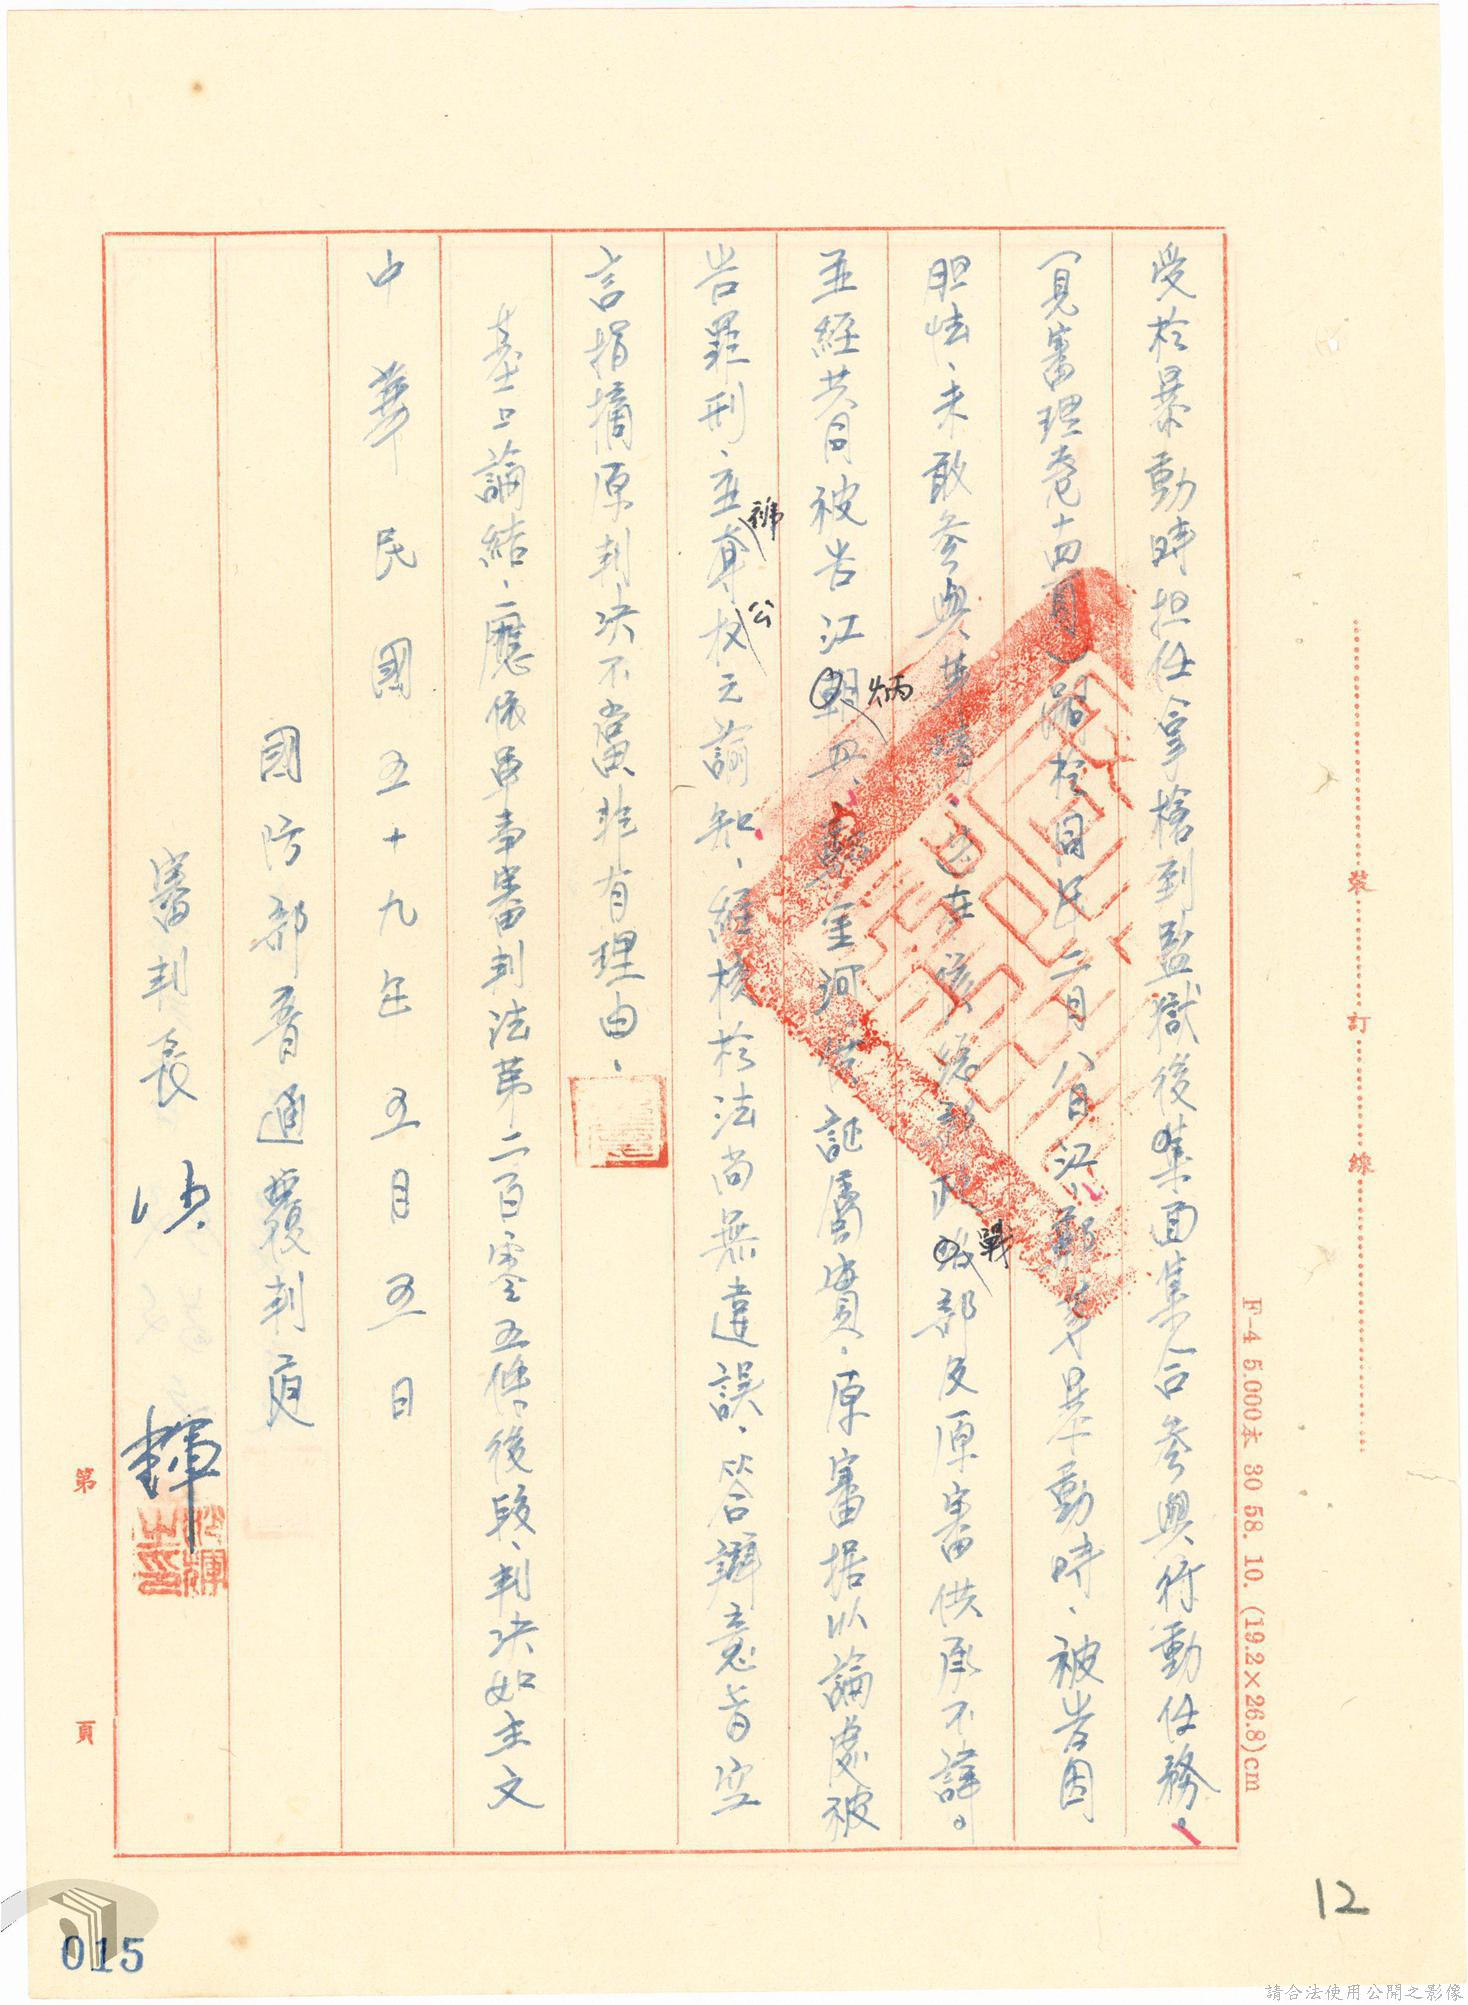 受於暴動時担任拿槍到監獄後集面集合參與行動任務。
(見審理卷十四頁)嗣於同年二月八日江、鄭等暴動時、被告因
胆怯、未敢參與等情、迭在偵總部政戰部及原審供承不諱。
並經共同被告江炳興、鄭金河供証屬實、原審據以論處被
告罪刑、並褫奪公权之諭知、經核於法尚無違誤、答辯意旨空
言指摘原判決不當、非有理由、
基上論結、應依軍事審判法第二百零五條後段、判決如主文
中華民國五十九年五月五日
國防部普通覆判庭
審判長 沙 輝
沙輝之印
裝 訂 線
F-4 5,000本 30 58. 10. (19.2×26.8)cm
第 頁
12
015
請合法使用公開之影像